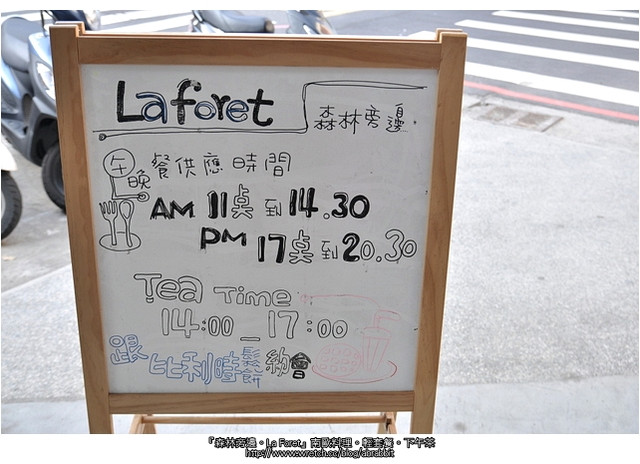 La foret 森林旁邊
午晚餐供應時間
AM 11桌到14.30
PM 17桌到20.30
Tea Time
14:00_17:00
跟比利時鬆餅約會
『森林旁邊。La Foret』南歐料理。輕套餐。下午茶
http://www.wretch.cc/blog/abrabbit